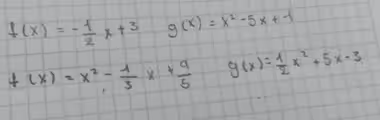 f(x) = -1/2 x + 3 g(x) = x² - 5x + -1
f(x) = x² - 1/3 x + 9/5 g(x) = 1/2 x² + 5x - 3